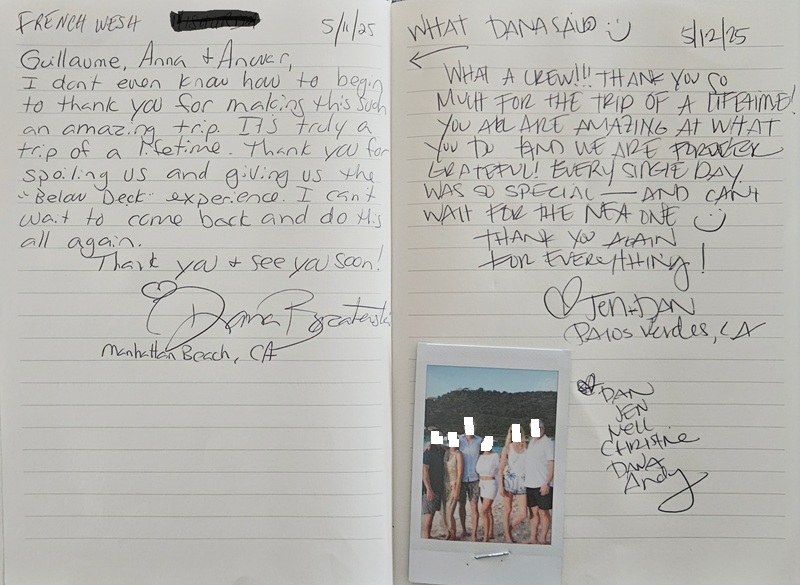 FRENCH WESH
5/11/25
Guillaume, Anna + Anouar,
I dont even know how to begin
to thank you for making this such
an amazing trip. It's truly a
trip of a lifetime. Thank you for
spoiling us and giving us the
"Below Deck" experience. I can't
wait to come back and do this
all again.
Thank you + see you soon!
Dana
Manhattan Beach, CA
WHAT DANA SAID :)
5/12/25
WHAT A CREW!!! THANK YOU SO
MUCH FOR THE TRIP OF A LIFETIME!
YOU ALL ARE AMAZING AT WHAT
YOU DO AND WE ARE FOREVER
GRATEFUL! EVERY SINGLE DAY
WAS SO SPECIAL — AND CAN'T
WAIT FOR THE NEXT ONE :)
THANK YOU AGAIN
FOR EVERYTHING!
JEN + DAN
PALOS VERDES, CA
DAN
JEN
NELL
CHRISTINE
DANA
Andy